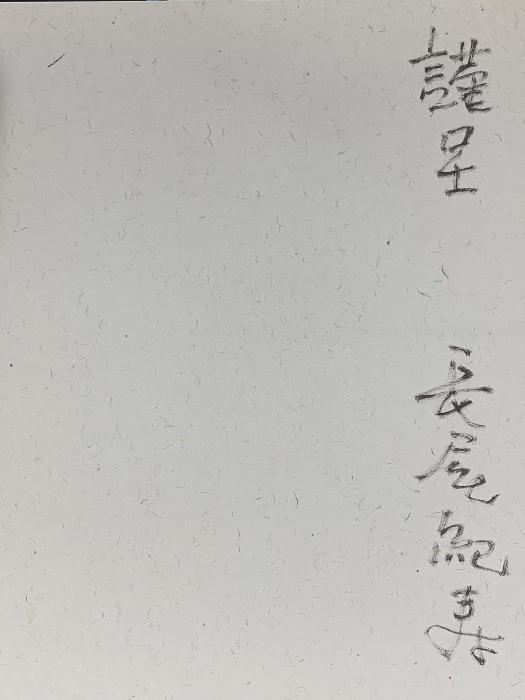 謹呈 長尾紀壽